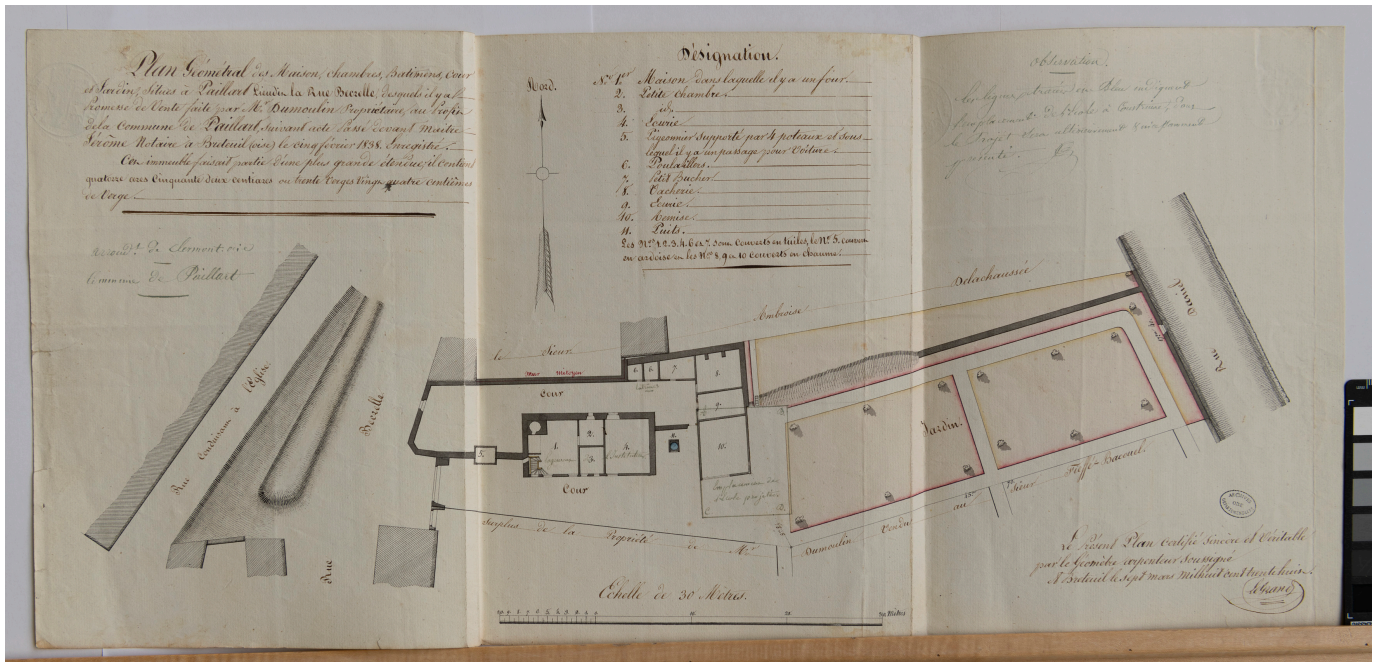 Plan Géométral des Maison, chambres, Batimens, Cour
et Jardin, Situés à Paillart Lieudit la Rue Bezelle, desquels il y a
Promesse de Vente faite par Mr. Dumoulin Propriétaire, au Profit
de la Commune de Paillart, Suivant acte Passé devant Maitre
Jérôme Notaire à Breteuil (oise) le Cinq février 1838. Enregistré.
Cet immeuble faisait partie d'une plus grande étendue; il Contient
quatorze ares Cinquante deux centiares ou trente Verges Vingt quatre Centièmes
de Verge.
de Clermont oise
Commune de Paillart
Nord.
Désignation.
Nos. 1er. Maison dans laquelle il y a un four.
2. Petite Chambre.
3. id.
4. Ecurie.
5. Pigeonnier Supporté par 4 poteaux et Sous
lequel il y a un passage pour Voiture.
6. Poulaillers.
7. Petit Bucher
8. Vacherie.
9. Ecurie.
10. Remise.
11. Puits.
Les Nos. 1. 2. 3. 4. 6 et 7. Sont Couverts en tuiles, le No. 5. couvert
en ardoise et les Nos. 8. 9 et 10 Couverts en Chaume.
observation.
Les lignes tracées en Bleu indiquent
l'emplacement de l'école à Construire, dont
le Projet Sera ultérieurement
présenté.
Rue Conduisant à l'Eglise
Rue Bezelle
le Sieur Ambroise Delachaussée
Mur Mitoyen
Cour
6. 6. 7. 8.
9.
10.
11.
1. 2. 3. 4.
5.
Cour
Emplacement de
l'école projetée
Jardin.
Rue David
Surplus de la Propriété de Mr. Dumoulin Vendu au Sieur Fieffé-Bacouel.
Le Présent Plan Certifié Sincère et Véritable
par le Géomètre arpenteur Soussigné
A Breteuil le Sept mars Mil huit cent trente huit.
LeGrand
ARCHIVES
OISE
Echelle de 30 Mètres.
10. 20. 30 Mètres